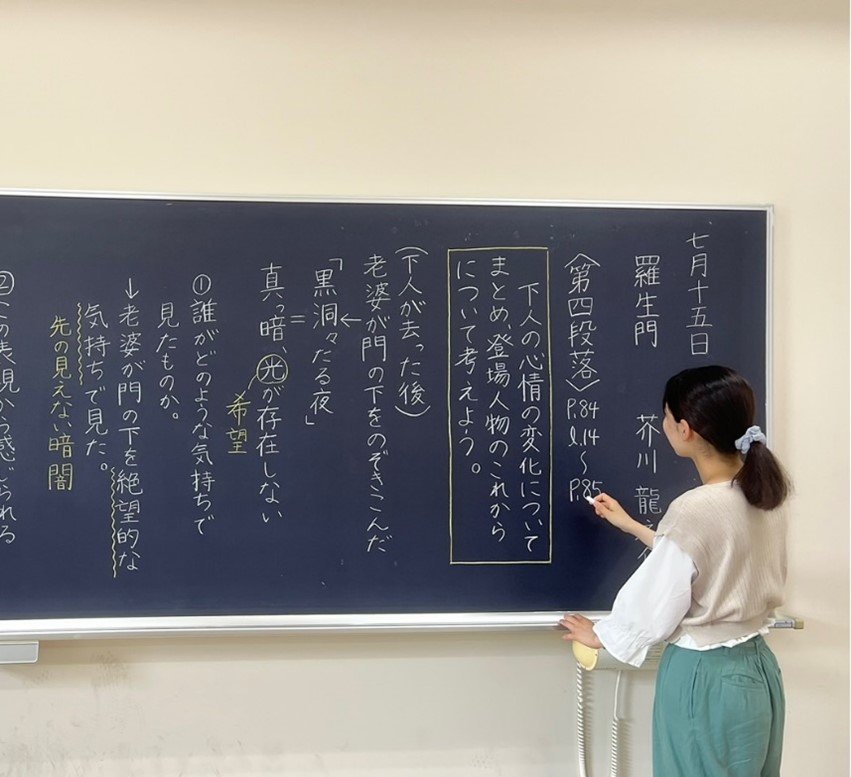 七月十五日
羅生門　芥川 龍
〈第四段落〉P.84 l.14 〜 P.85
下人の心情の変化について
まとめ、登場人物のこれから
について考えよう。
(下人が去った後)
老婆が門の下をのぞきこんだ
「黒洞々たる夜」
=
真っ暗、光が存在しない
希望
①誰がどのような気持ちで
見たものか。
→老婆が門の下を絶望的な
気持ちで見た。
先の見えない暗闇
②この表現から感じられる